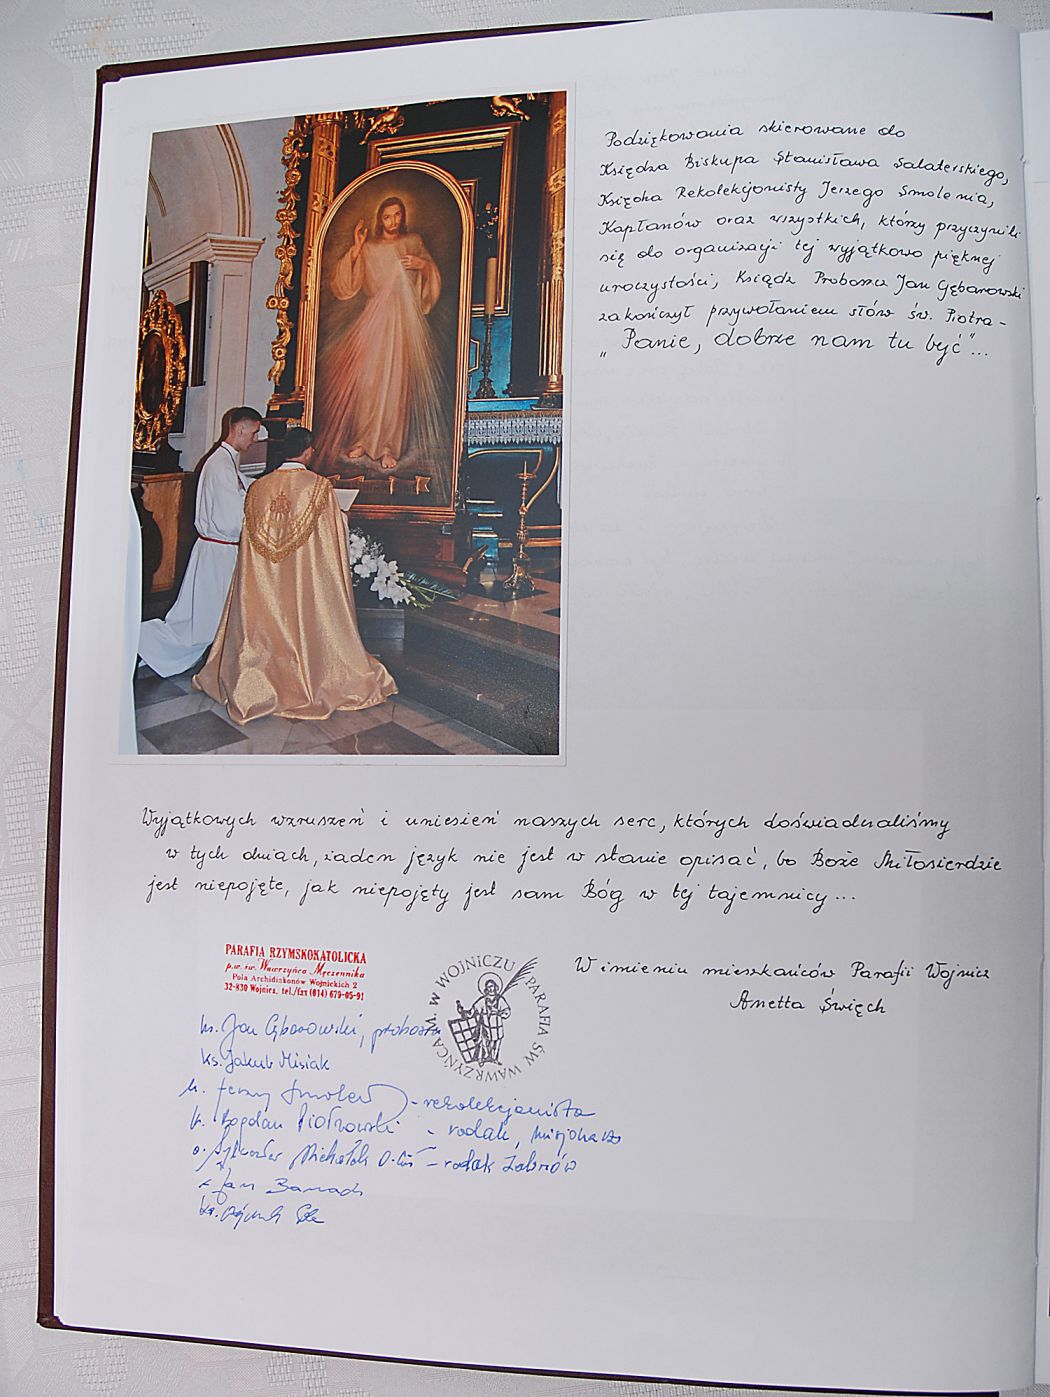 Podziękowania skierowane do
Księdza Biskupa Stanisława Salaterskiego,
Księdza Rekolekcjonisty Jerzego Smolenia,
Kapłanów oraz wszystkich, którzy przyczynili
się do organizacji tej wyjątkowo pięknej
uroczystości, Ksiądz Proboszcz Jan Gębarowski
zakończył przywołaniem słów św. Piotra -
„Panie, dobrze nam tu być"...
Wyjątkowych wzruszeń i uniesień naszych serc, których doświadczaliśmy
w tych dniach, żaden język nie jest w stanie opisać, bo Boże Miłosierdzie
jest niepojęte, jak niepojęty jest sam Bóg w tej tajemnicy...
PARAFIA RZYMSKOKATOLICKA
p.w. św. Wawrzyńca Męczennika
Pola Archidiakonów Wojnickich 2
32-830 Wojnicz, tel./fax (014) 679-05-91
PARAFIA ŚW. WAWRZYŃCA M. W WOJNICZU
W imieniu mieszkańców Parafii Wojnicz
Anetta Święch
ks. Jan Gębarowski, proboszcz
ks. Jakub Misiak
ks. Jerzy Smoleń - rekolekcjonista
ks. Bogdan Piotrowski - rodak, misjonarz
o. Sylwester - rodak
Jan Banach
ks.